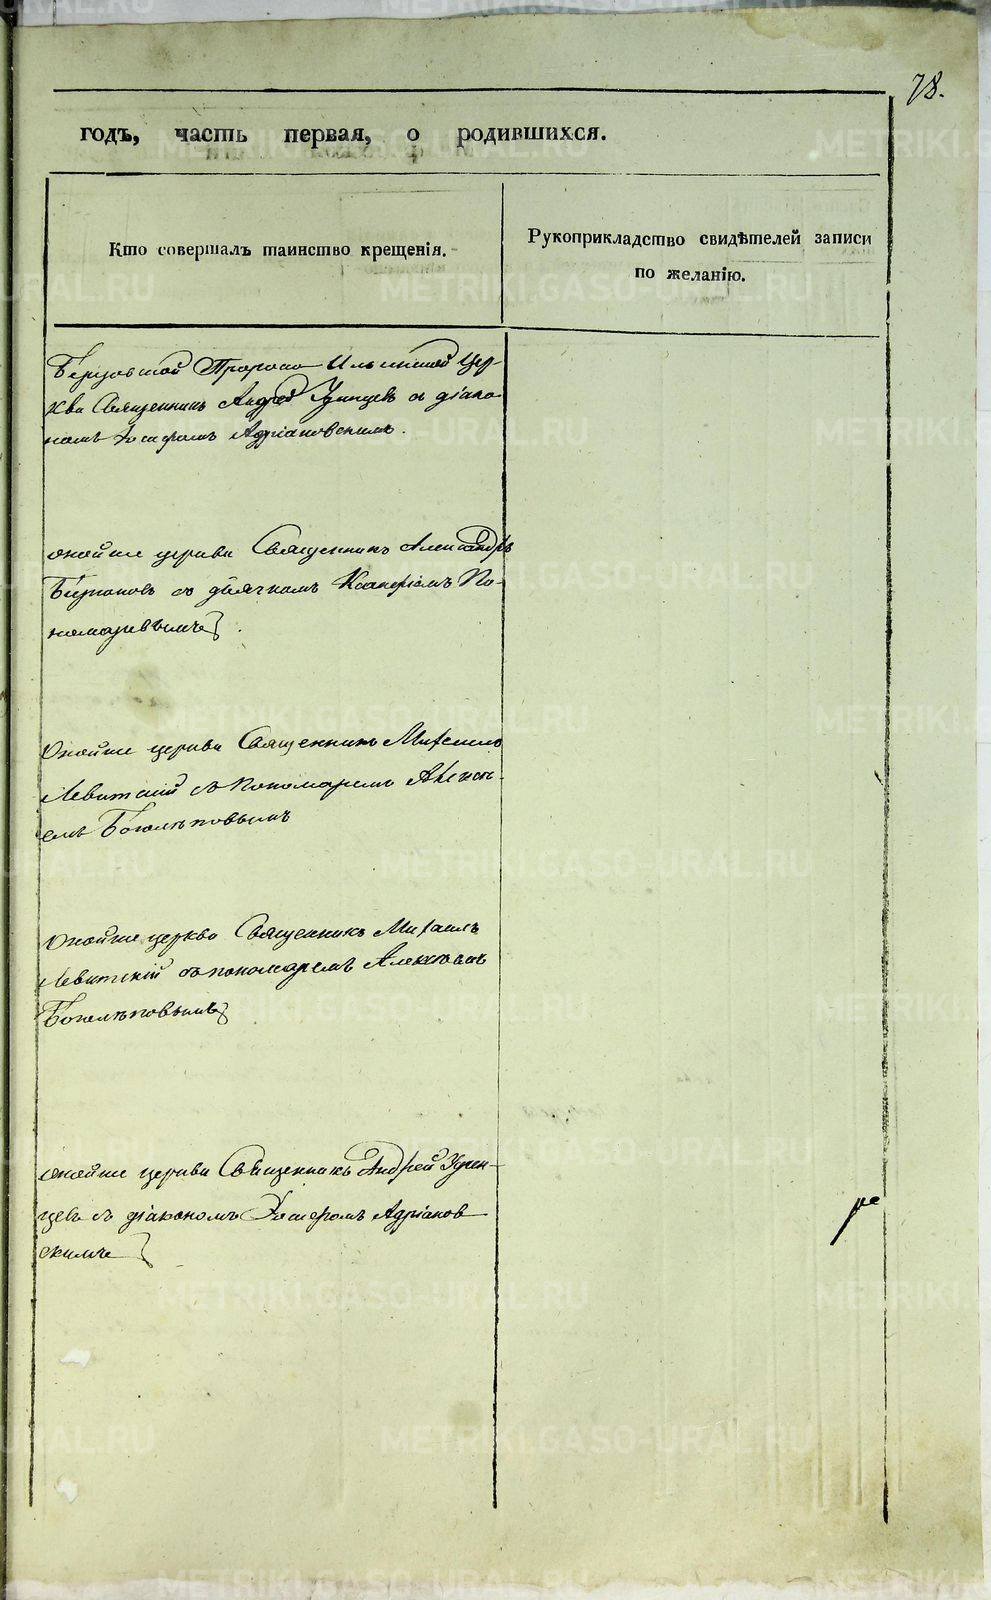 78.
годъ, часть первая, о родившихся.
Кто совершалъ таинство крещенія.
Рукоприкладство свидѣтелей записи
по желанію.
Пророко Ильинской Цер-
кви Священникъ Андрей Удинцевъ съ діако-
номъ Адріановскимъ.
оной же церкви Священникъ Александръ
съ дьячкомъ По-
номаревымъ
Оной же церкви Священникъ Михаилъ
Левитскій съ пономаремъ Алексѣ-
емъ Боголѣповымъ
Оной же церкви Священникъ Михаилъ
Левитскій съ пономаремъ Алексѣемъ
Боголѣповымъ
оной же церкви Священникъ Андрей Удин-
цевъ съ діакономъ Адріанов
скимъ
METRIKI.GASO-URAL.RU